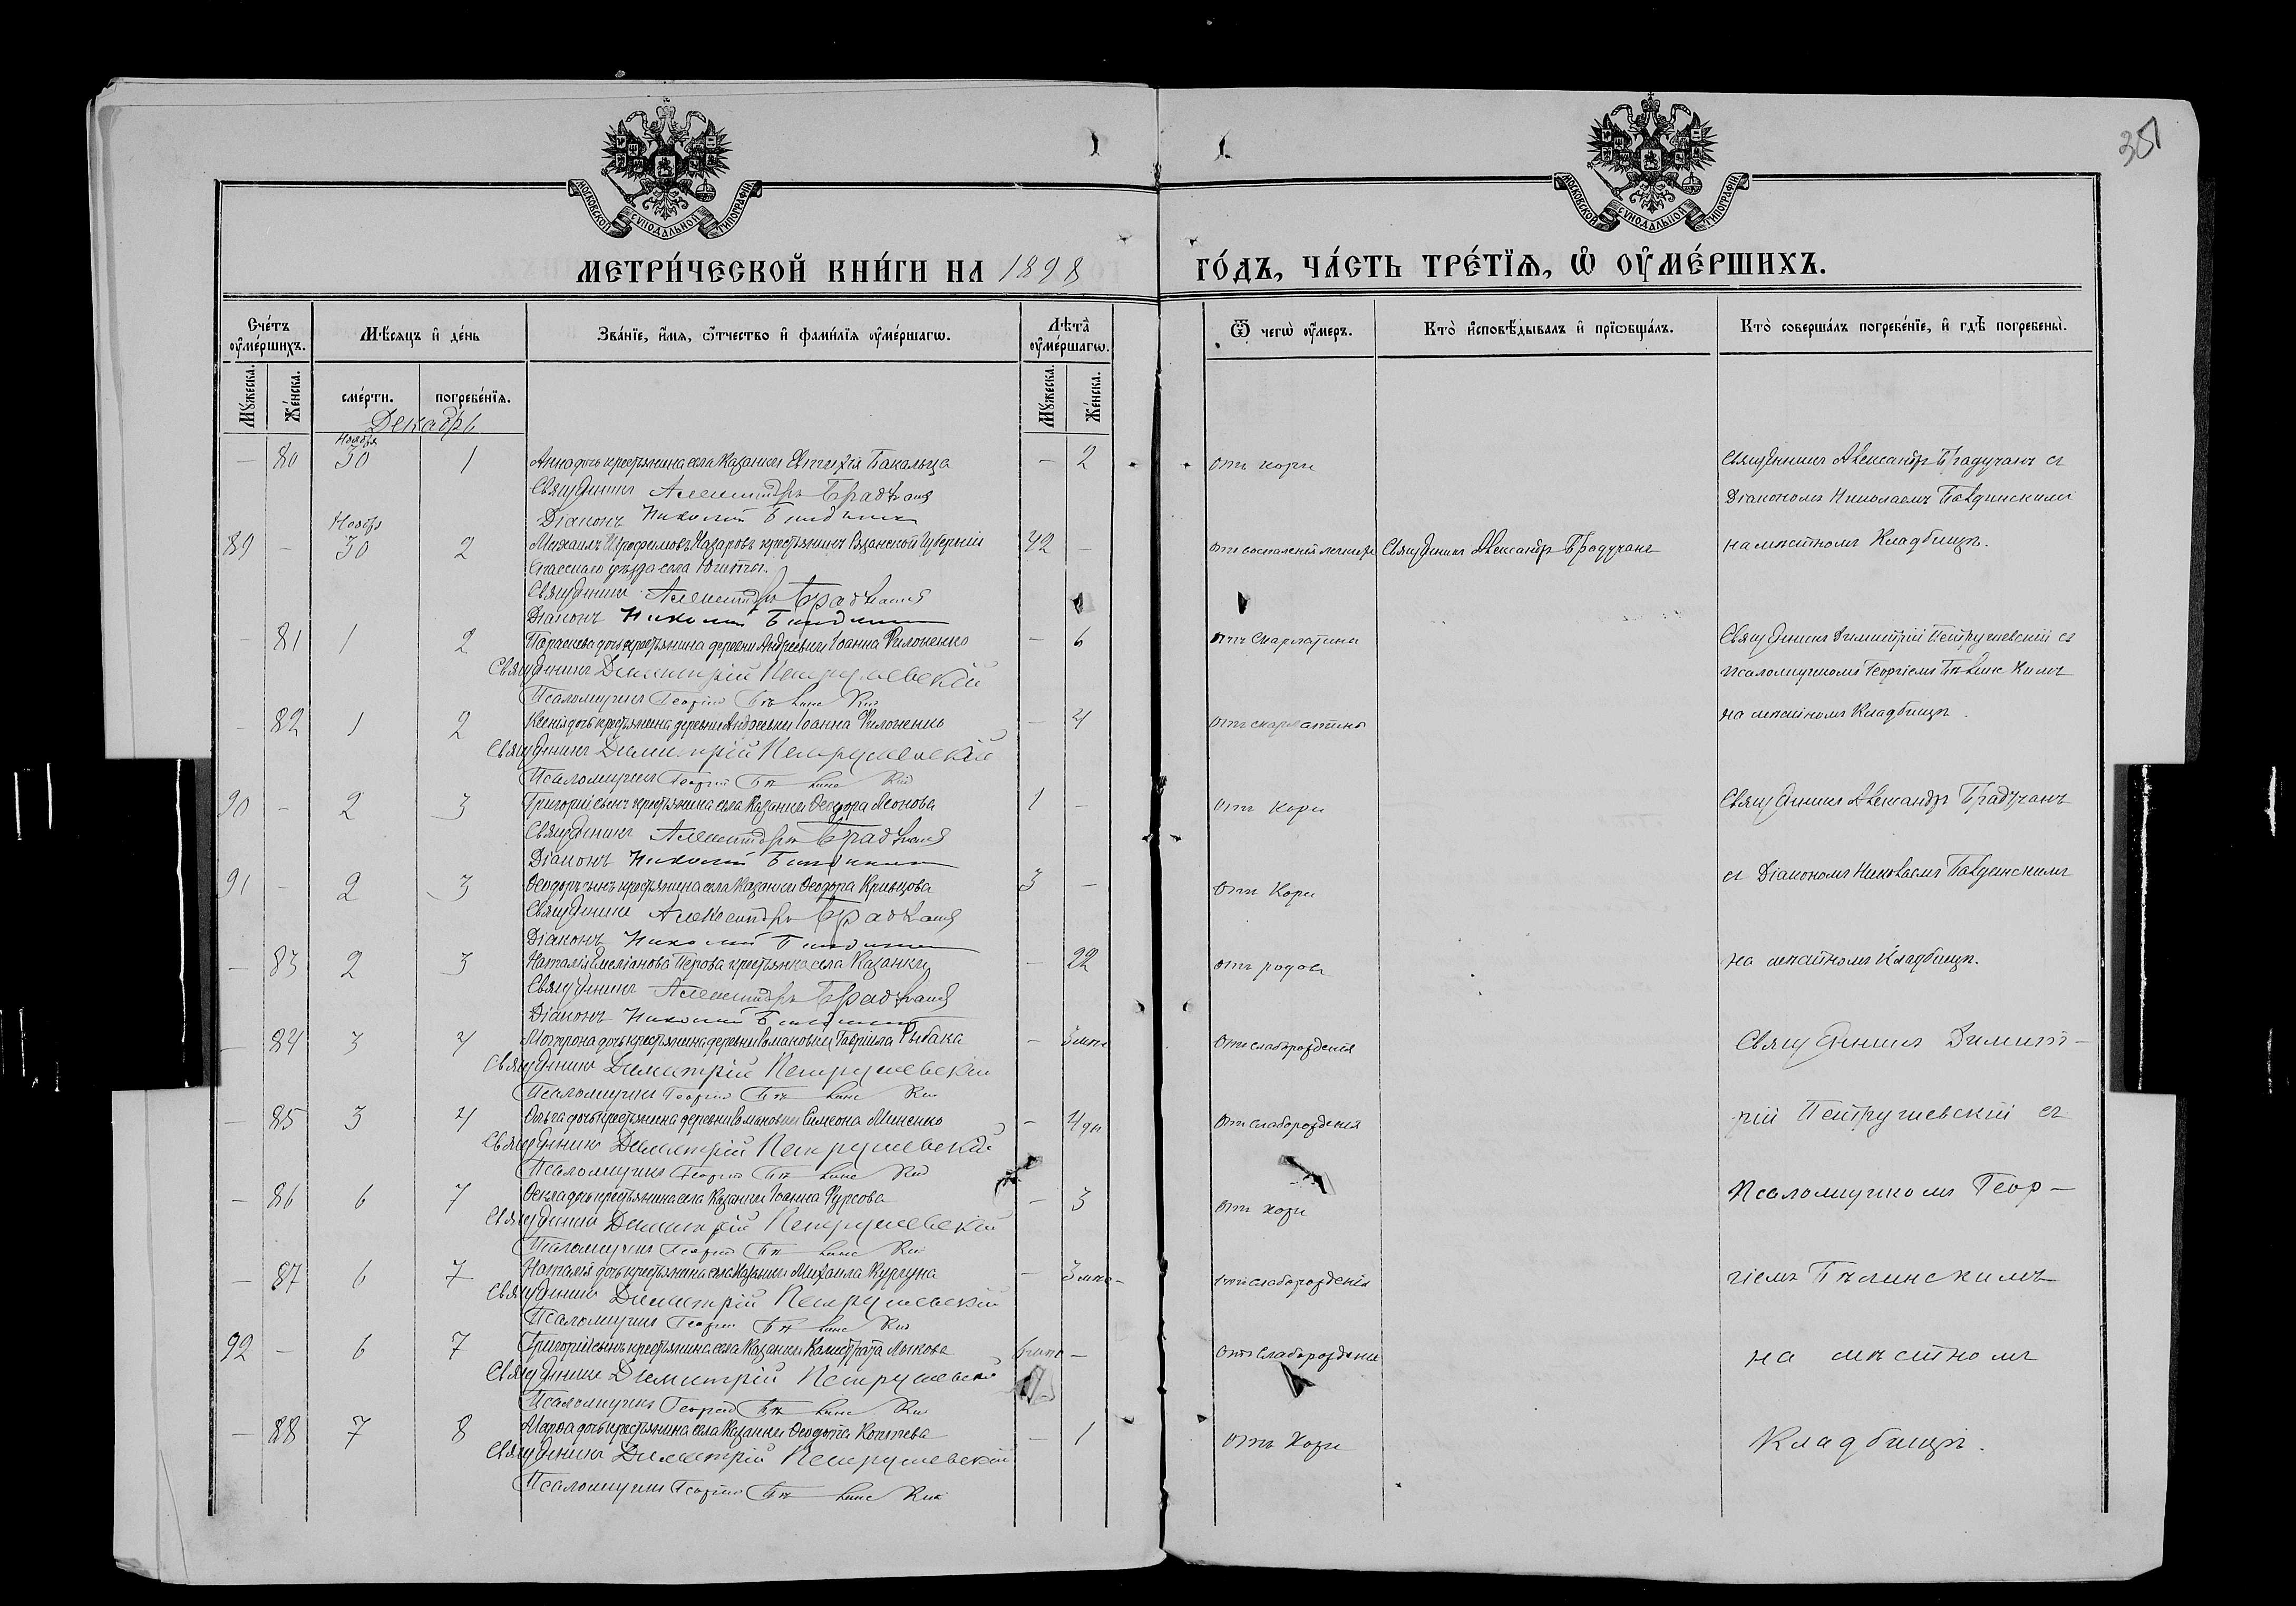 351
МОСКОВСКОЙ СѴНОДАЛЬНОЙ ТИПОГРАФІИ
МОСКОВСКОЙ СѴНОДАЛЬНОЙ ТИПОГРАФІИ
МЕТРИ́ЧЕСКОЙ КНИ́ГИ НА 1898
ГО́ДЪ, ЧА́СТЬ ТРЕ́ТІѦ, Ѡ҆ ОУ҆МЕ́РШИХЪ.
Сче́тъ оу҆ме́ршихъ.
Мѣ́сяцъ и҆ де́нь
Зва́нїе, и҆́мѧ, ѻ҆́тчество и҆ фами́лїѧ оу҆ме́ршагѡ.
Лѣ́та оу҆ме́ршагѡ.
Ѿ чегѡ̀ оу҆́меръ.
Кто̀ и҆сповѣ́дывалъ и҆ прїѡбща́лъ.
Кто̀ соверша́лъ погребе́нїе, и҆ гдѣ̀ погребены̀.
Мꙋ́жеска.
Же́нска.
сме́рти.
погребе́нїѧ.
Мꙋ́жеска.
Же́нска.
Декабрь
Ноября
— 80 30 1 Анна дочь крестьянина села Казанки Евтихія Бакальца — 2 отъ кори Священникъ Александръ Брадучанъ съ
Священникъ Александръ Брадучанъ
Діакономъ Николаемъ
Діаконъ Николай
Ноября
89 — 30 2 Михаилъ Назаровъ крестьянинъ Рязанской Губерніи 42 — отъ воспаленія легкихъ Священникъ Александръ Брадучанъ на мѣстномъ Кладбищѣ.
Спасскаго уѣзда села
Священникъ Александръ Брадучанъ
Діаконъ Николай
— 81 1 2 Параскева дочь крестьянина деревни Андреевки Іоанна Филоненко — 6 отъ скарлатины Священникъ Димитрій Петрушевскій съ
Священникъ Димитрій Петрушевскій
псаломщикомъ Георгіемъ Бѣлинскимъ
Псаломщикъ Георгій Бѣлинскій
— 82 1 2 Ксенія дочь крестьянина деревни Андреевки Іоанна Филоненко — 4 отъ скарлатины на мѣстномъ Кладбищѣ.
Священникъ Димитрій Петрушевскій
Псаломщикъ Георгій Бѣлинскій
90 — 2 3 Григорій сынъ крестьянина села Казанки Ѳеодора Леонова 1 — отъ кори Священникъ Александръ Брадучанъ
Священникъ Александръ Брадучанъ
Діаконъ Николай
91 — 2 3 Ѳеодоръ сынъ крестьянина села Казанки Ѳеодора Кривцова 3 — отъ Кори съ Діакономъ Николаемъ
Священникъ Александръ Брадучанъ
Діаконъ Николай
— 83 2 3 Наталія Емеліанова Перова крестьянка села Казанки — 22 отъ родовъ на мѣстномъ Кладбищѣ.
Священникъ Александръ Брадучанъ
Діаконъ Николай
— 84 3 4 Мотрона дочь крестьянина деревни Романовки Гавріила Рыбака — 3 отъ слаборожденія Священникъ Димит-
Священникъ Димитрій Петрушевскій
Псаломщикъ Георгій Бѣлинскій
— 85 3 4 Ольга дочь крестьянина деревни Романовки Симеона Миненко — 4 дн отъ слаборожденія рій Петрушевскій съ
Священникъ Димитрій Петрушевскій
Псаломщикъ Георгій Бѣлинскій
— 86 6 7 Ѳекла дочь крестьянина села Казанки Іоанна Фурсова — 3 отъ кори псаломщикомъ Геор-
Священникъ Димитрій Петрушевскій
Псаломщикъ Георгій Бѣлинскій
— 87 6 7 Наталія дочь крестьянина села Казанки Михаила — 3 отъ слаборожденія гіемъ Бѣлинскимъ
Священникъ Димитрій Петрушевскій
Псаломщикъ Георгій Бѣлинскій
92 — 6 7 Григорій сынъ крестьянина села Казанки Калистрата Лыкова — отъ слаборожденія на мѣстномъ
Священникъ Димитрій Петрушевскій
Псаломщикъ Георгій Бѣлинскій
— 88 7 8 Марѳа дочь крестьянина села Казанки Ѳеодота — 1 отъ Кори Кладбищѣ.
Священникъ Димитрій Петрушевскій
Псаломщикъ Георгій Бѣлинскій